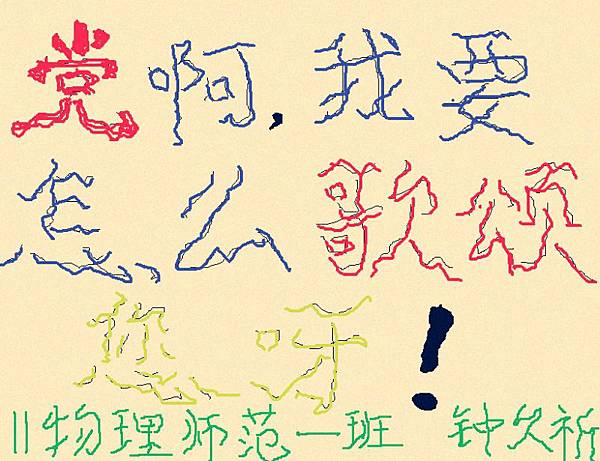 党啊,我要
怎么歌颂
您呀!
11物理师范一班 钟久祈